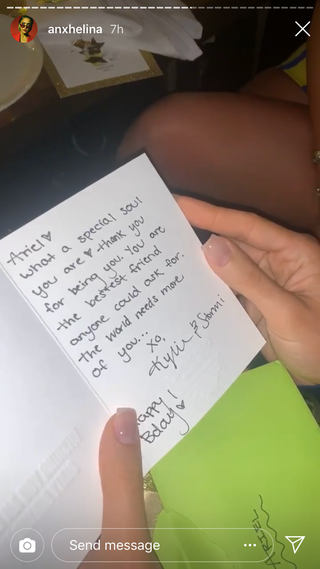 anxhelina 7h
Ariel ♥
what a special soul
you are ♥ thank you
for being you. You are
the bestest friend
anyone could ask for.
the world needs more
of you...
xo,
Kylie & Stormi
Happy
Bday! ♥
Send message